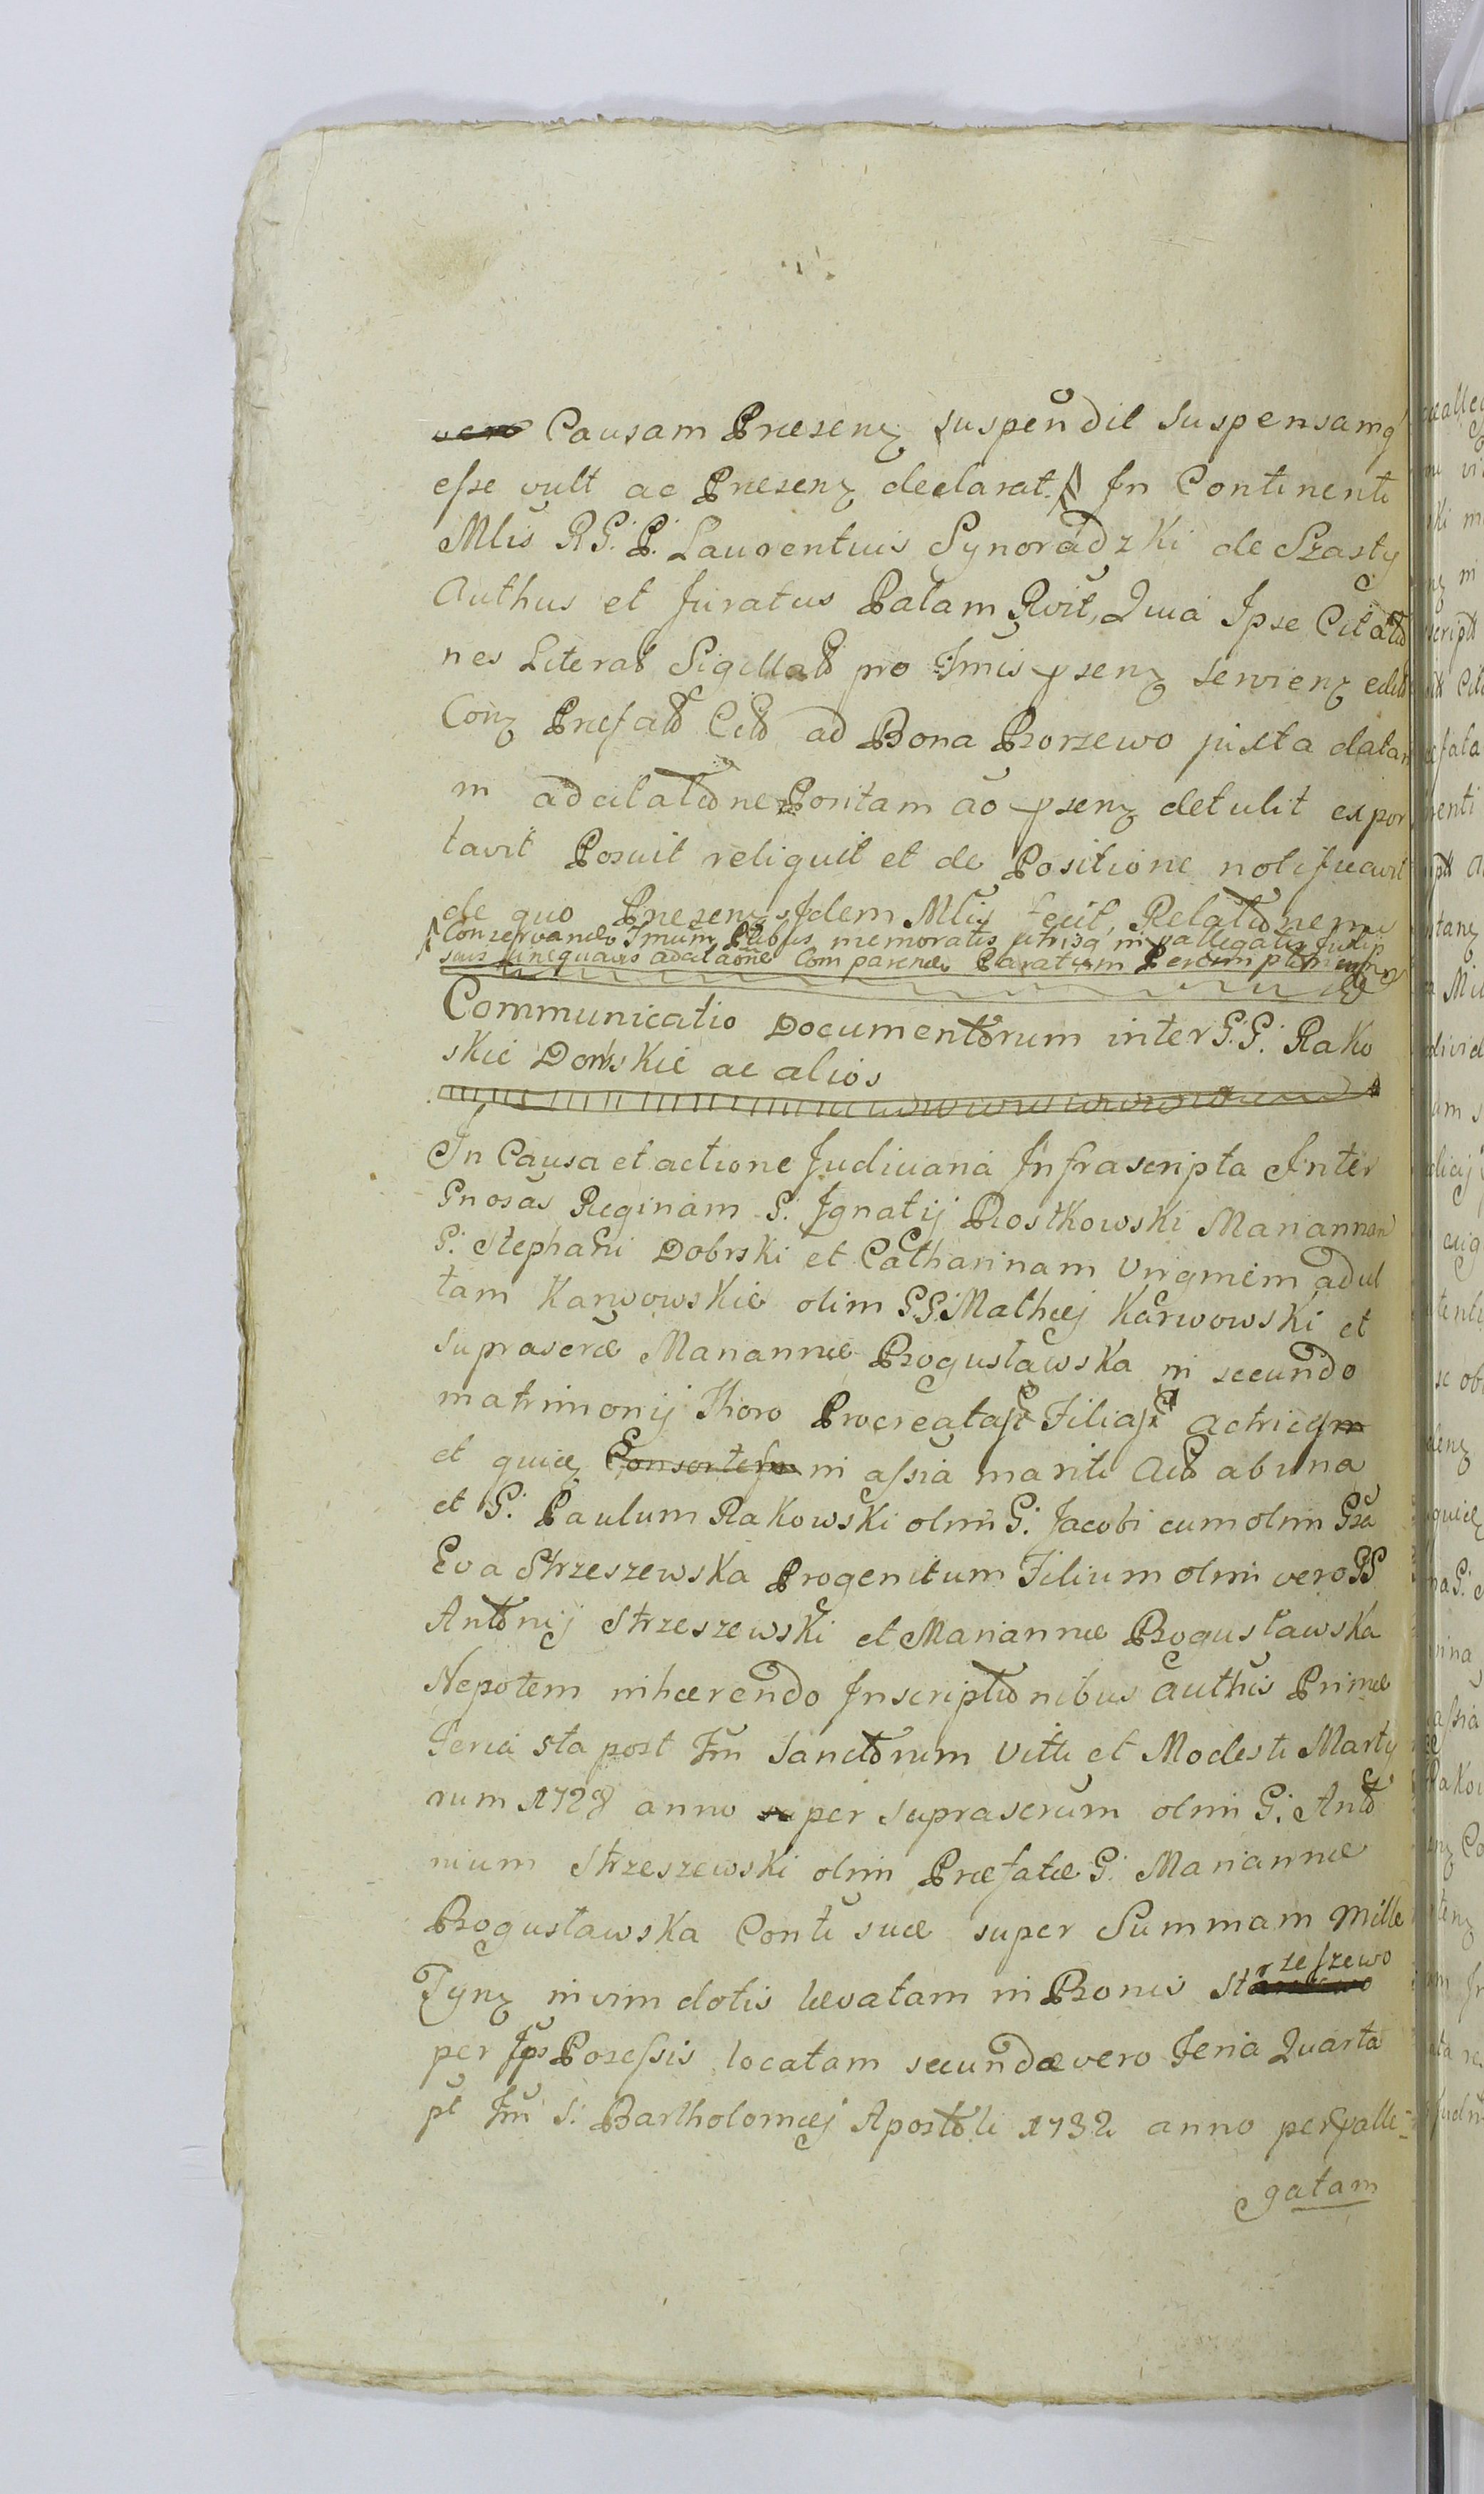 vero Causam Præsenz suspendit suspensamq
esse vult ac Præsenz declarat. In Continenti
Mlis R G. P. Laurentius Synoradzki de Szasty
Authus et Juratus Palam Rvit, Quia Ipse Citatio
nes Literal Sigillat pro Tmis psenz servienz
Conz Præfat Cit ad Bona Borzewo juxta datam
in ad citatione Positam ao psenz detulit expor
tavit Posuit reliquit et de Positione notificavit
de quo Præsenz Idem Mlis fecit, Relationem
Conservando Tmum Ptibus memoratis utrisq in pallegatis
suis ad citaone Comparendo Paratum
Communicatio Documentorum inter G. G. Rako
skie Domskie ac alios
In Causa et actione Judiciaria Infrascripta Inter
Gnosas Reginam G. Ignatij Rostkowski Mariannam
G. Stephani Dobrski et Catharinam Virginem adul
tam Karwowskie olim G.G. Mathæj Karwowski et
suprascræ Mariannæ Bogusławska in secundo
matrimonij Thoro Procreatas Filias actric
et quiez Consortem in assia mariti Act ab una
et G. Paulum Rakowski olim G. Jacobi cum olim Gsa
Eva Strzeszewska Progenitum Filium olim vero GG
Antonij Strzeszewski et Mariannæ Bogusławska
Nepotem inhærendo Inscriptionibus authis Primæ
Feria 5ta post Fm Sanctorum Viti et Modesti Marty
rum 1728 anno per suprascrum olim G. Anto
nium Strzeszewski olim Præfatæ G. Mariannæ
Bogusławska Conti suæ super Summam mille
Tynz in vim dotis levatam in Bonis Strzeszewo
per Ips Posessis locatam secundæ vero Feria Quarta
pt Fm S. Bartholomæj Apostoli 1732 anno per palle-
gatam